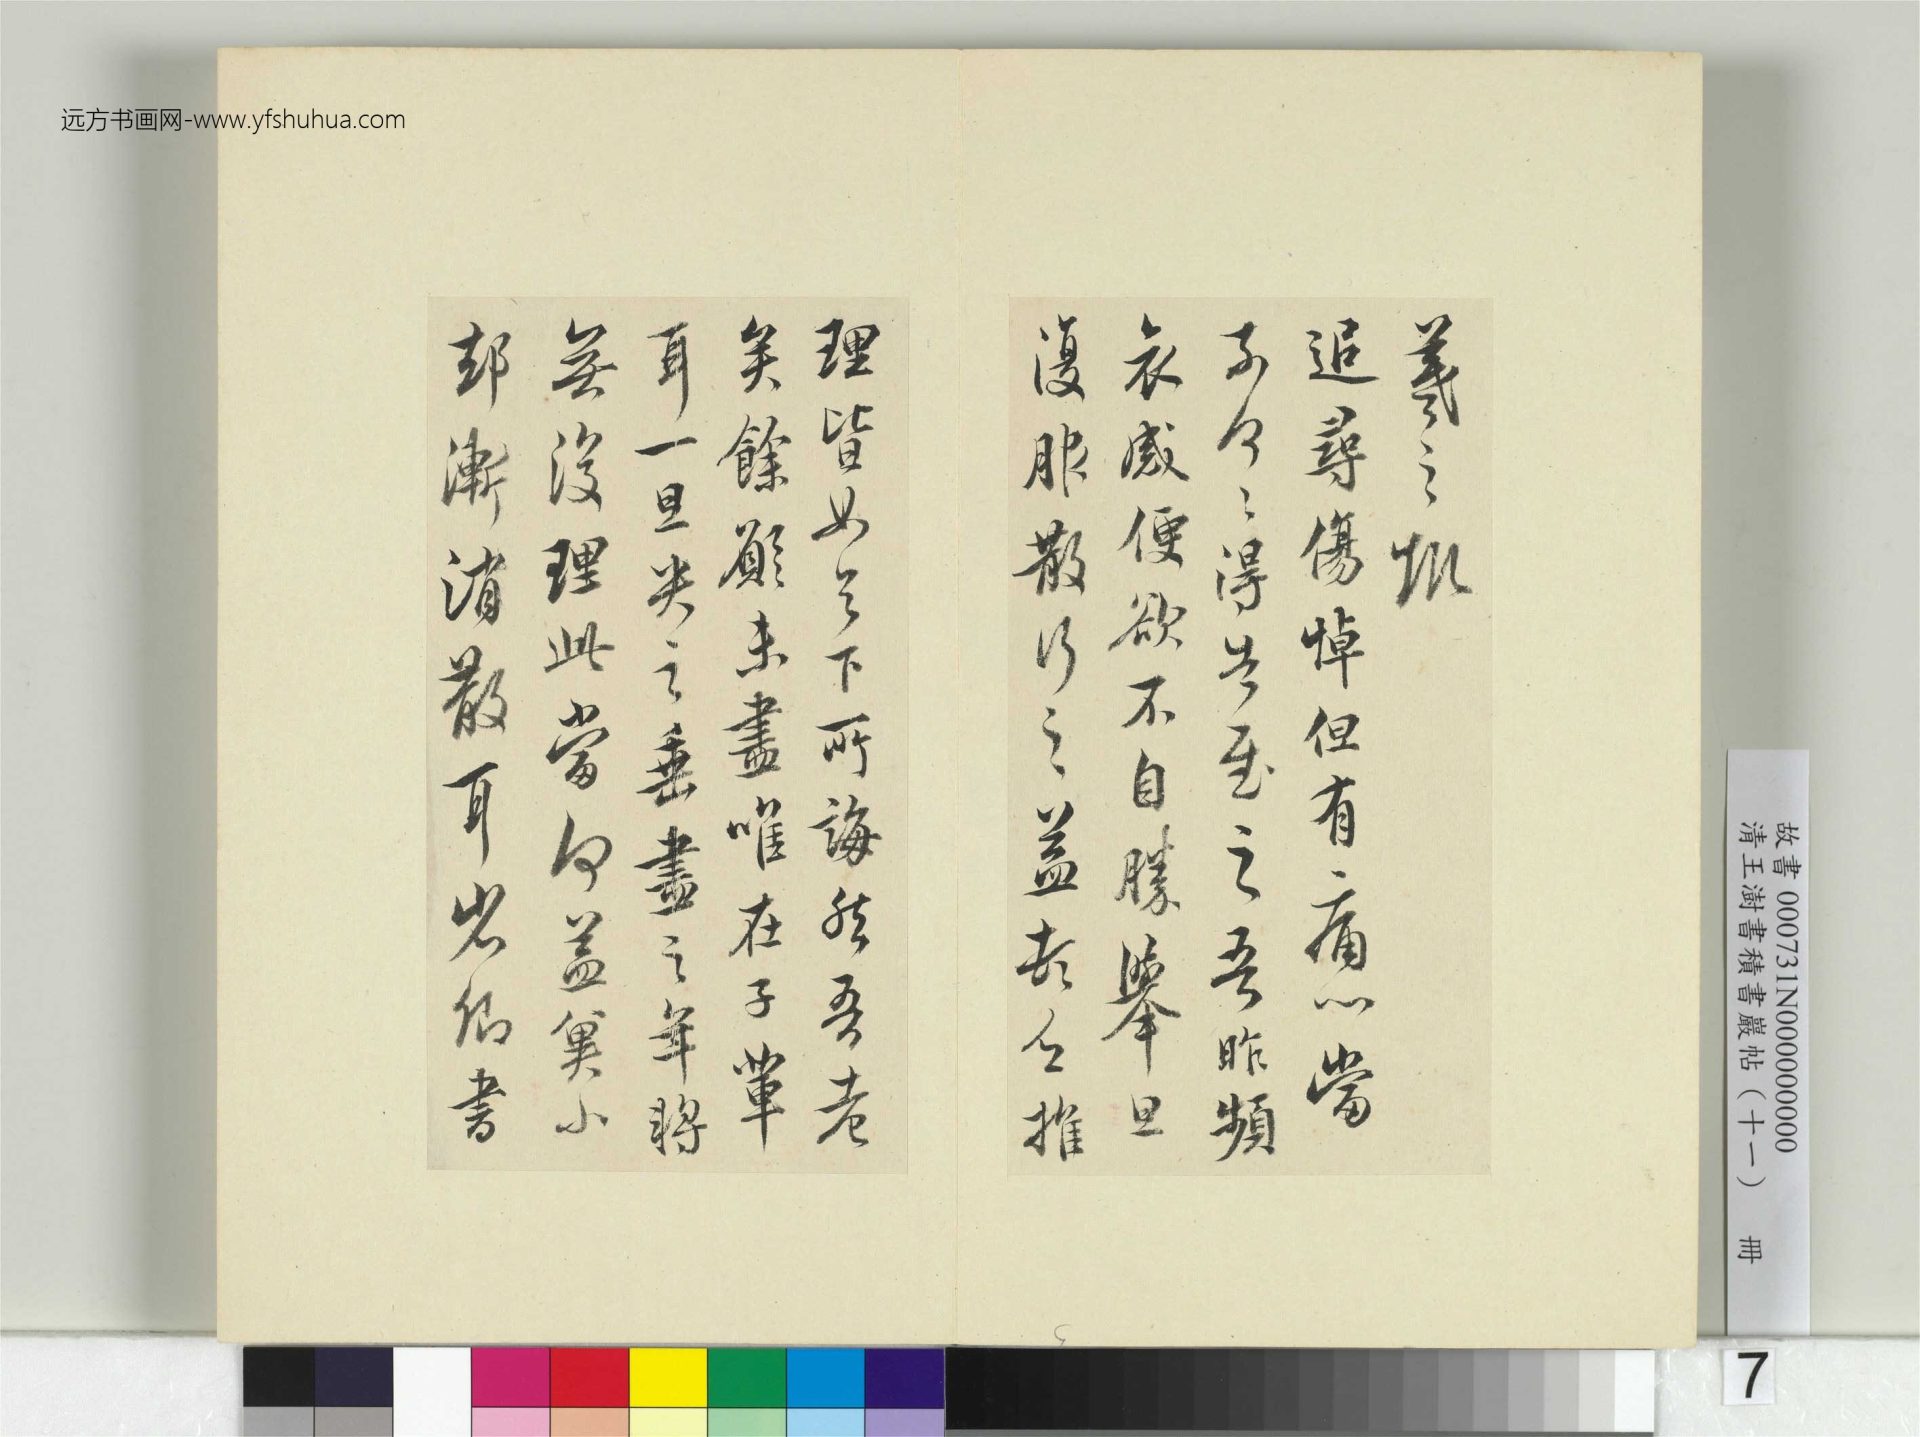 远方书画网-www.yfshuhua.com
羲之
追尋傷悼但有痛心當
奈何〻得告慰之吾昨頻
哀感便欲不自勝舉旦
復服散行之益頓乏推
理皆如足下所誨然吾老
矣餘願未盡唯在子輩
耳一旦哭之垂盡之年將
無復理此當何益冀小
却漸消散耳省卿書
故書 000731N000000000
清王澍書積書巖帖（十一） 冊
7